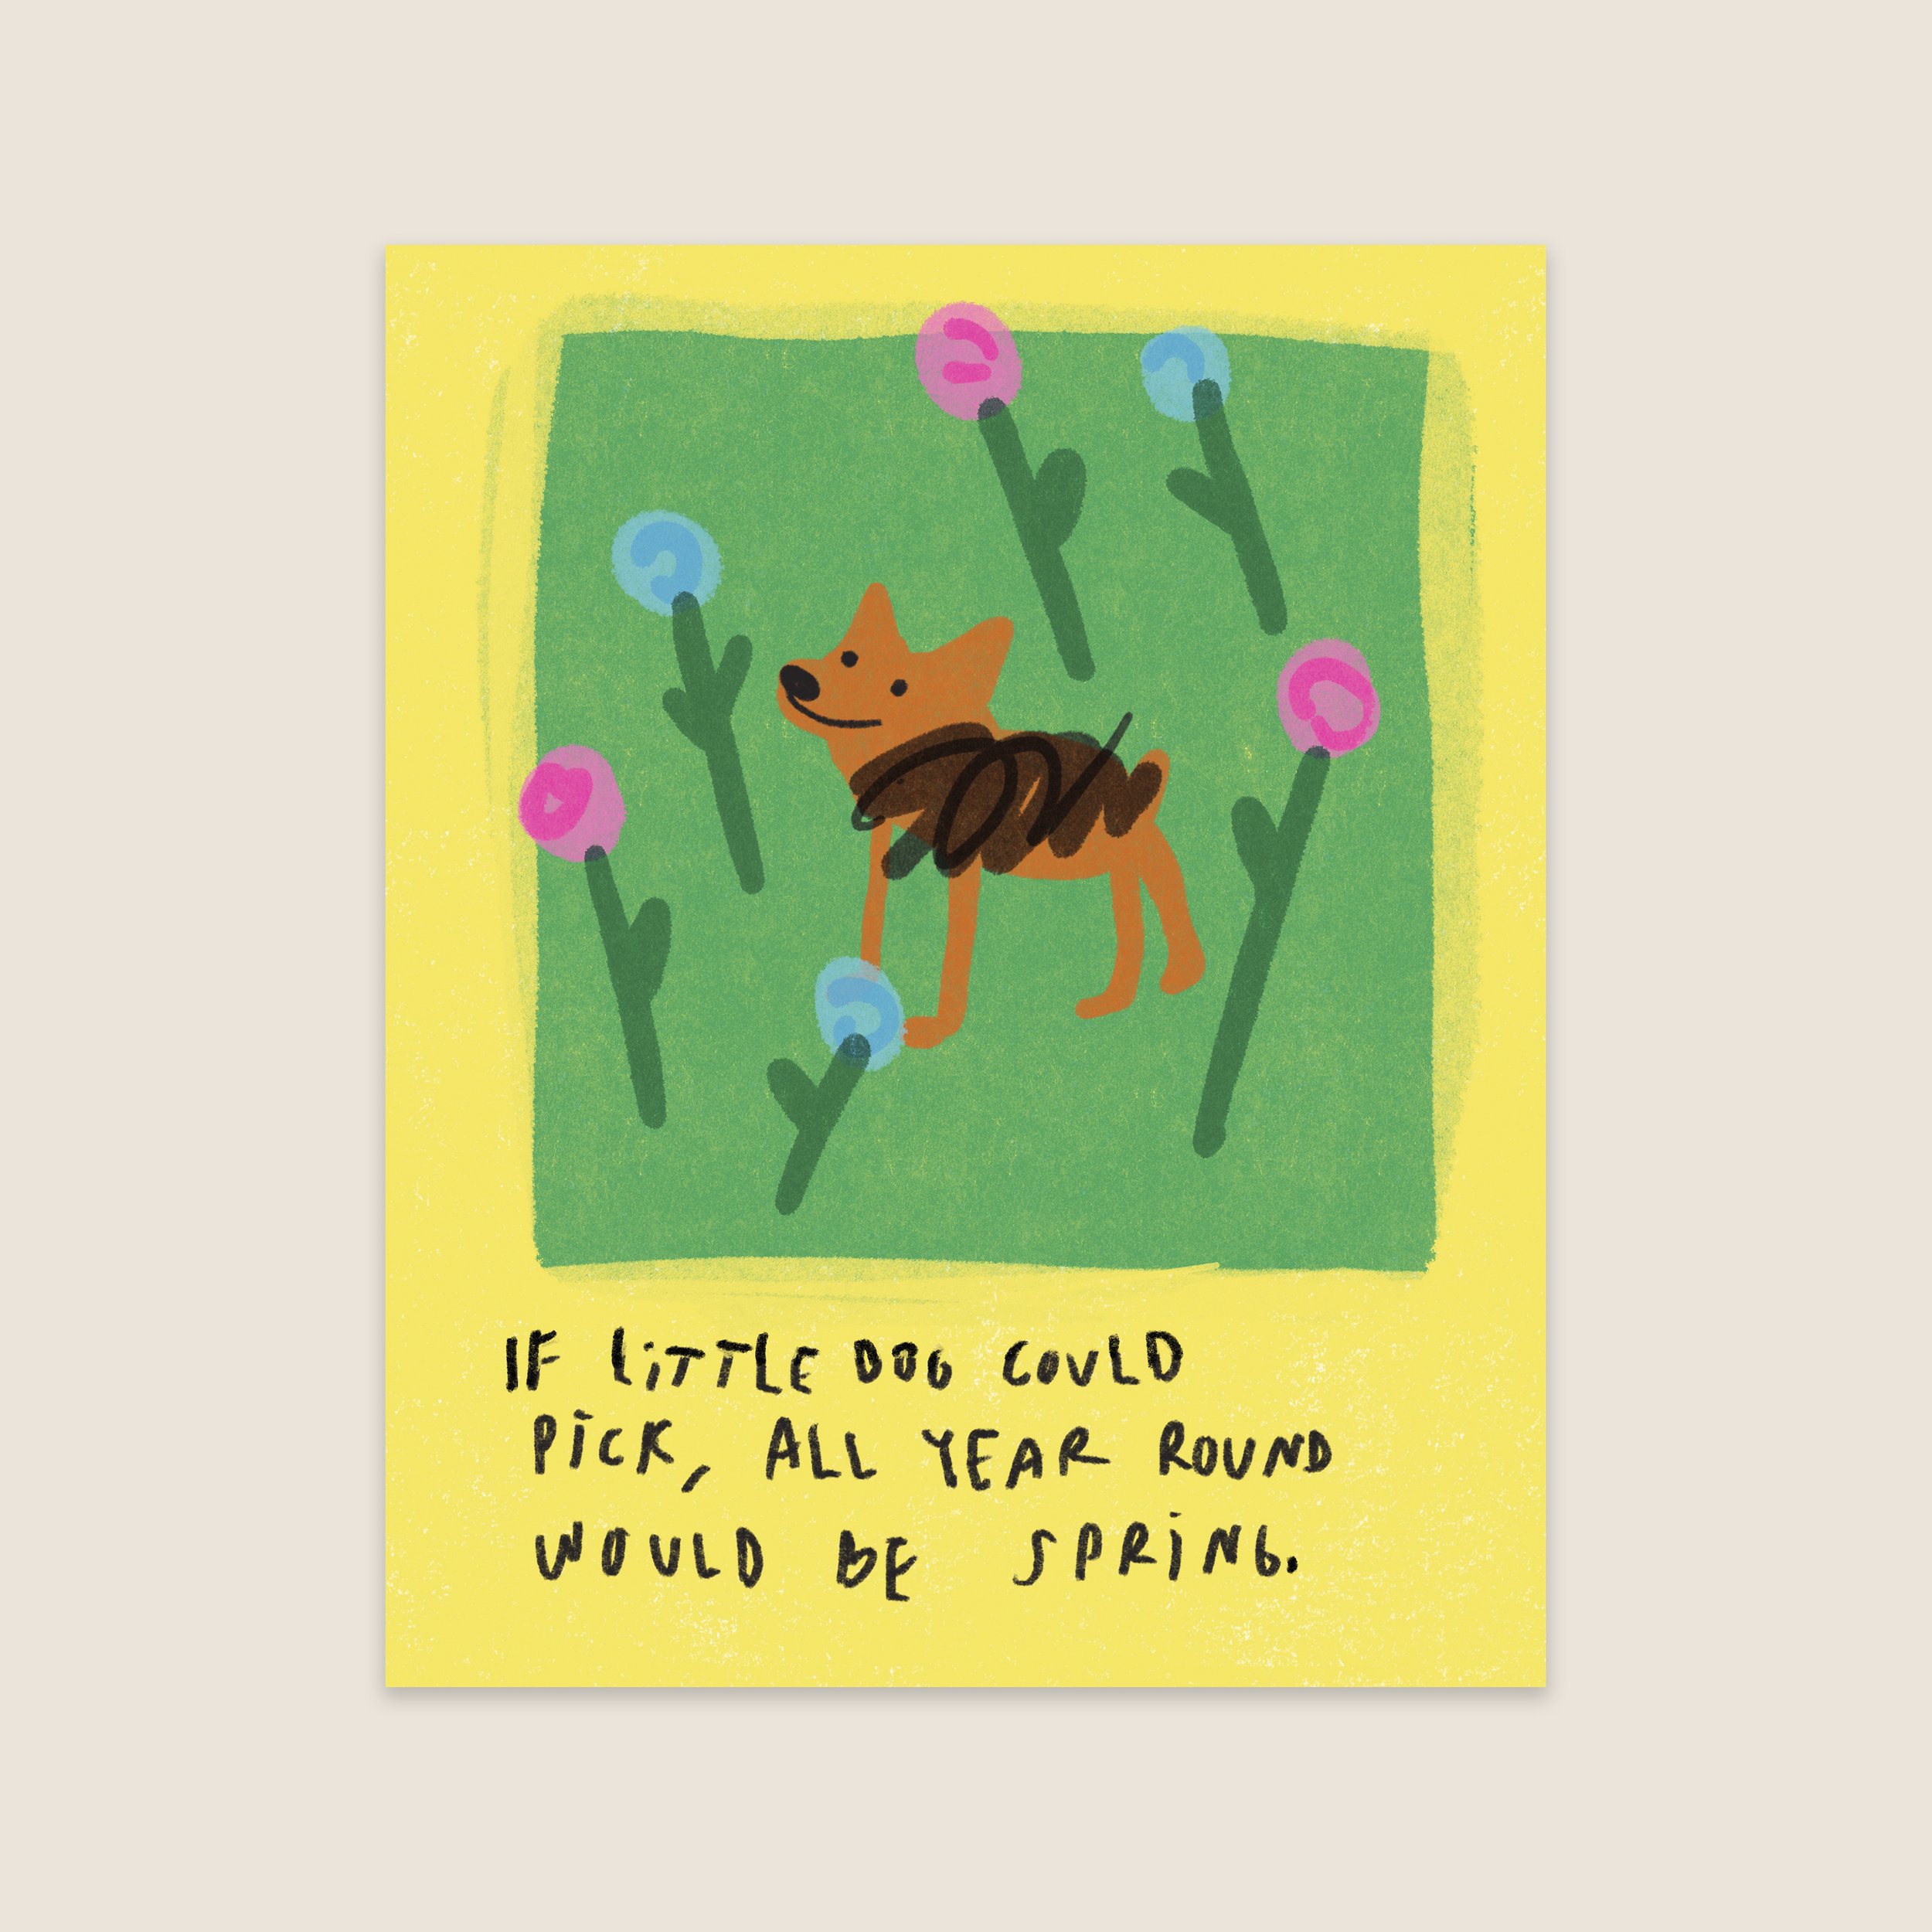 IF LiTTLE DOG COULD
PiCK, ALL YEAR ROUND
WOULD BE SPRiNG.